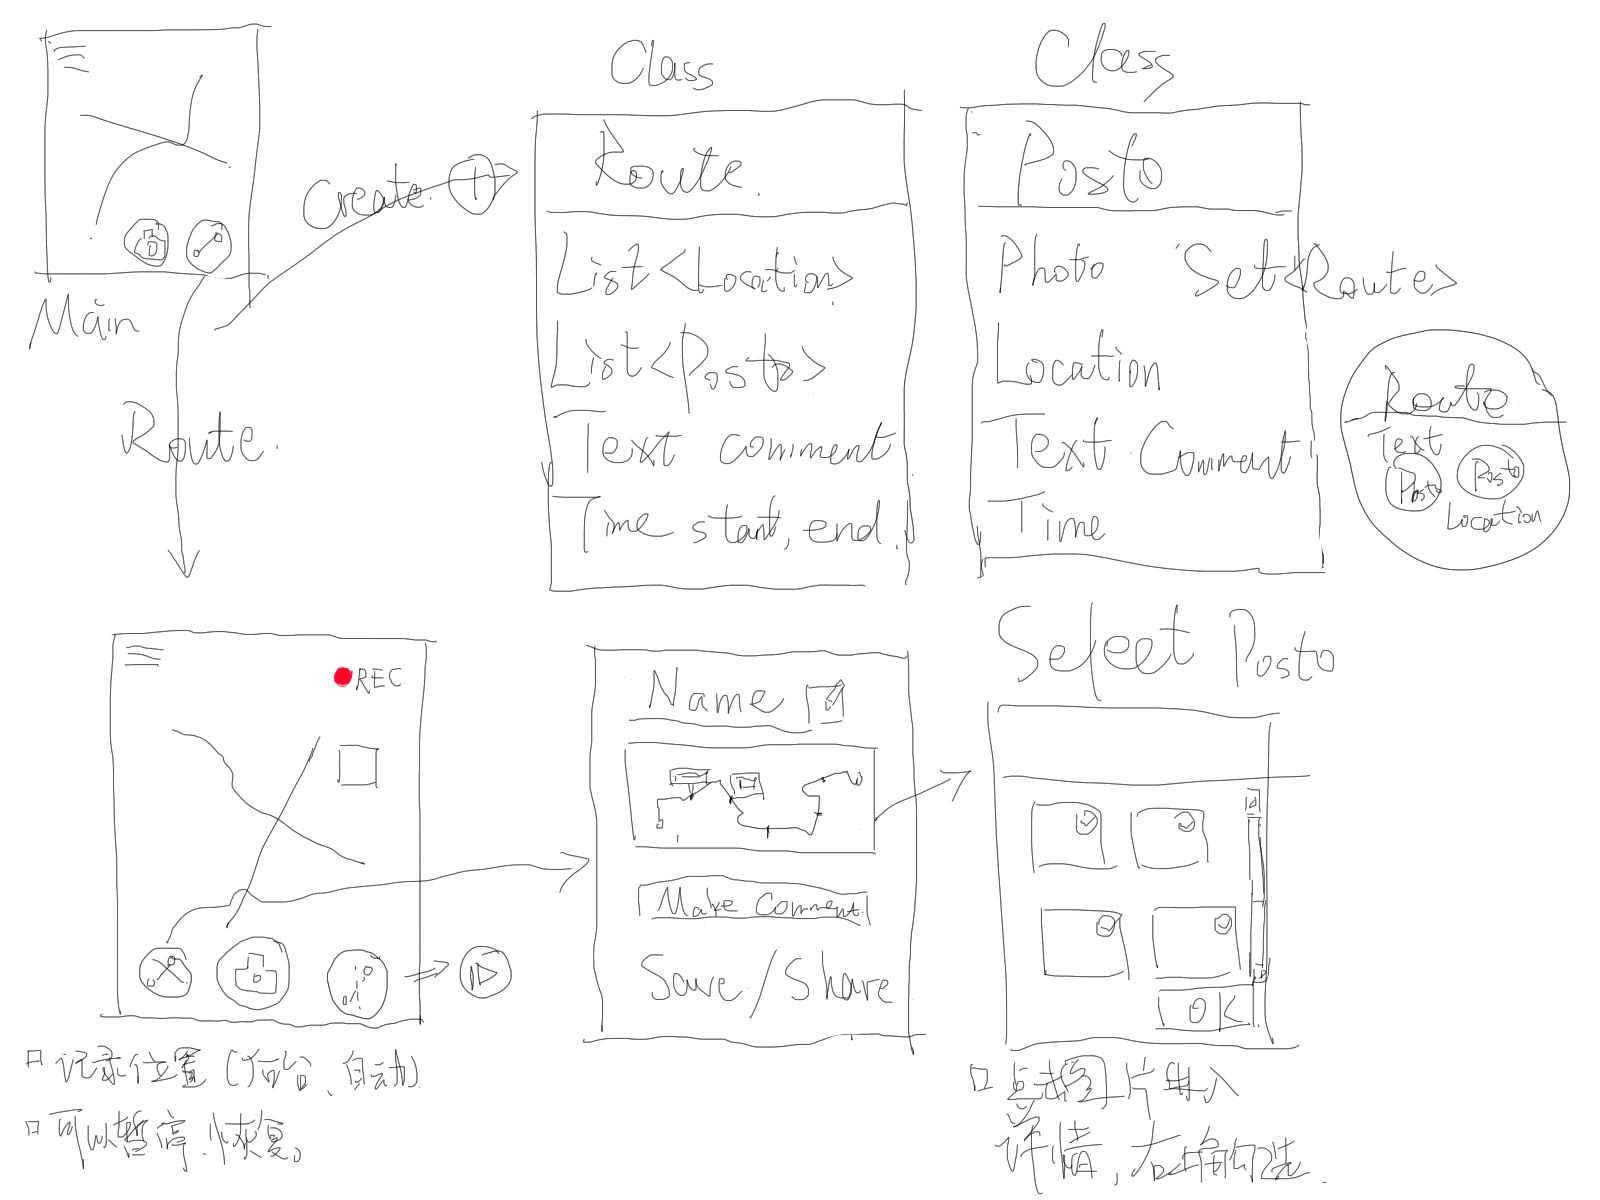 Main
Create
Route.
Class
Route.
List<Location>
List<Posto>
Text comment
Time start, end.
Class
Posto
Photo Set<Route>
Location
Text Comment
Time
Route
Text
Posto Posto
Location
REC
□ 记录位置(后台、自动)
□ 可以暂停、恢复。
Name
Make Comment
Save/Share
Select Posto
OK
□ 点击图片进入
详情,右上角勾选.